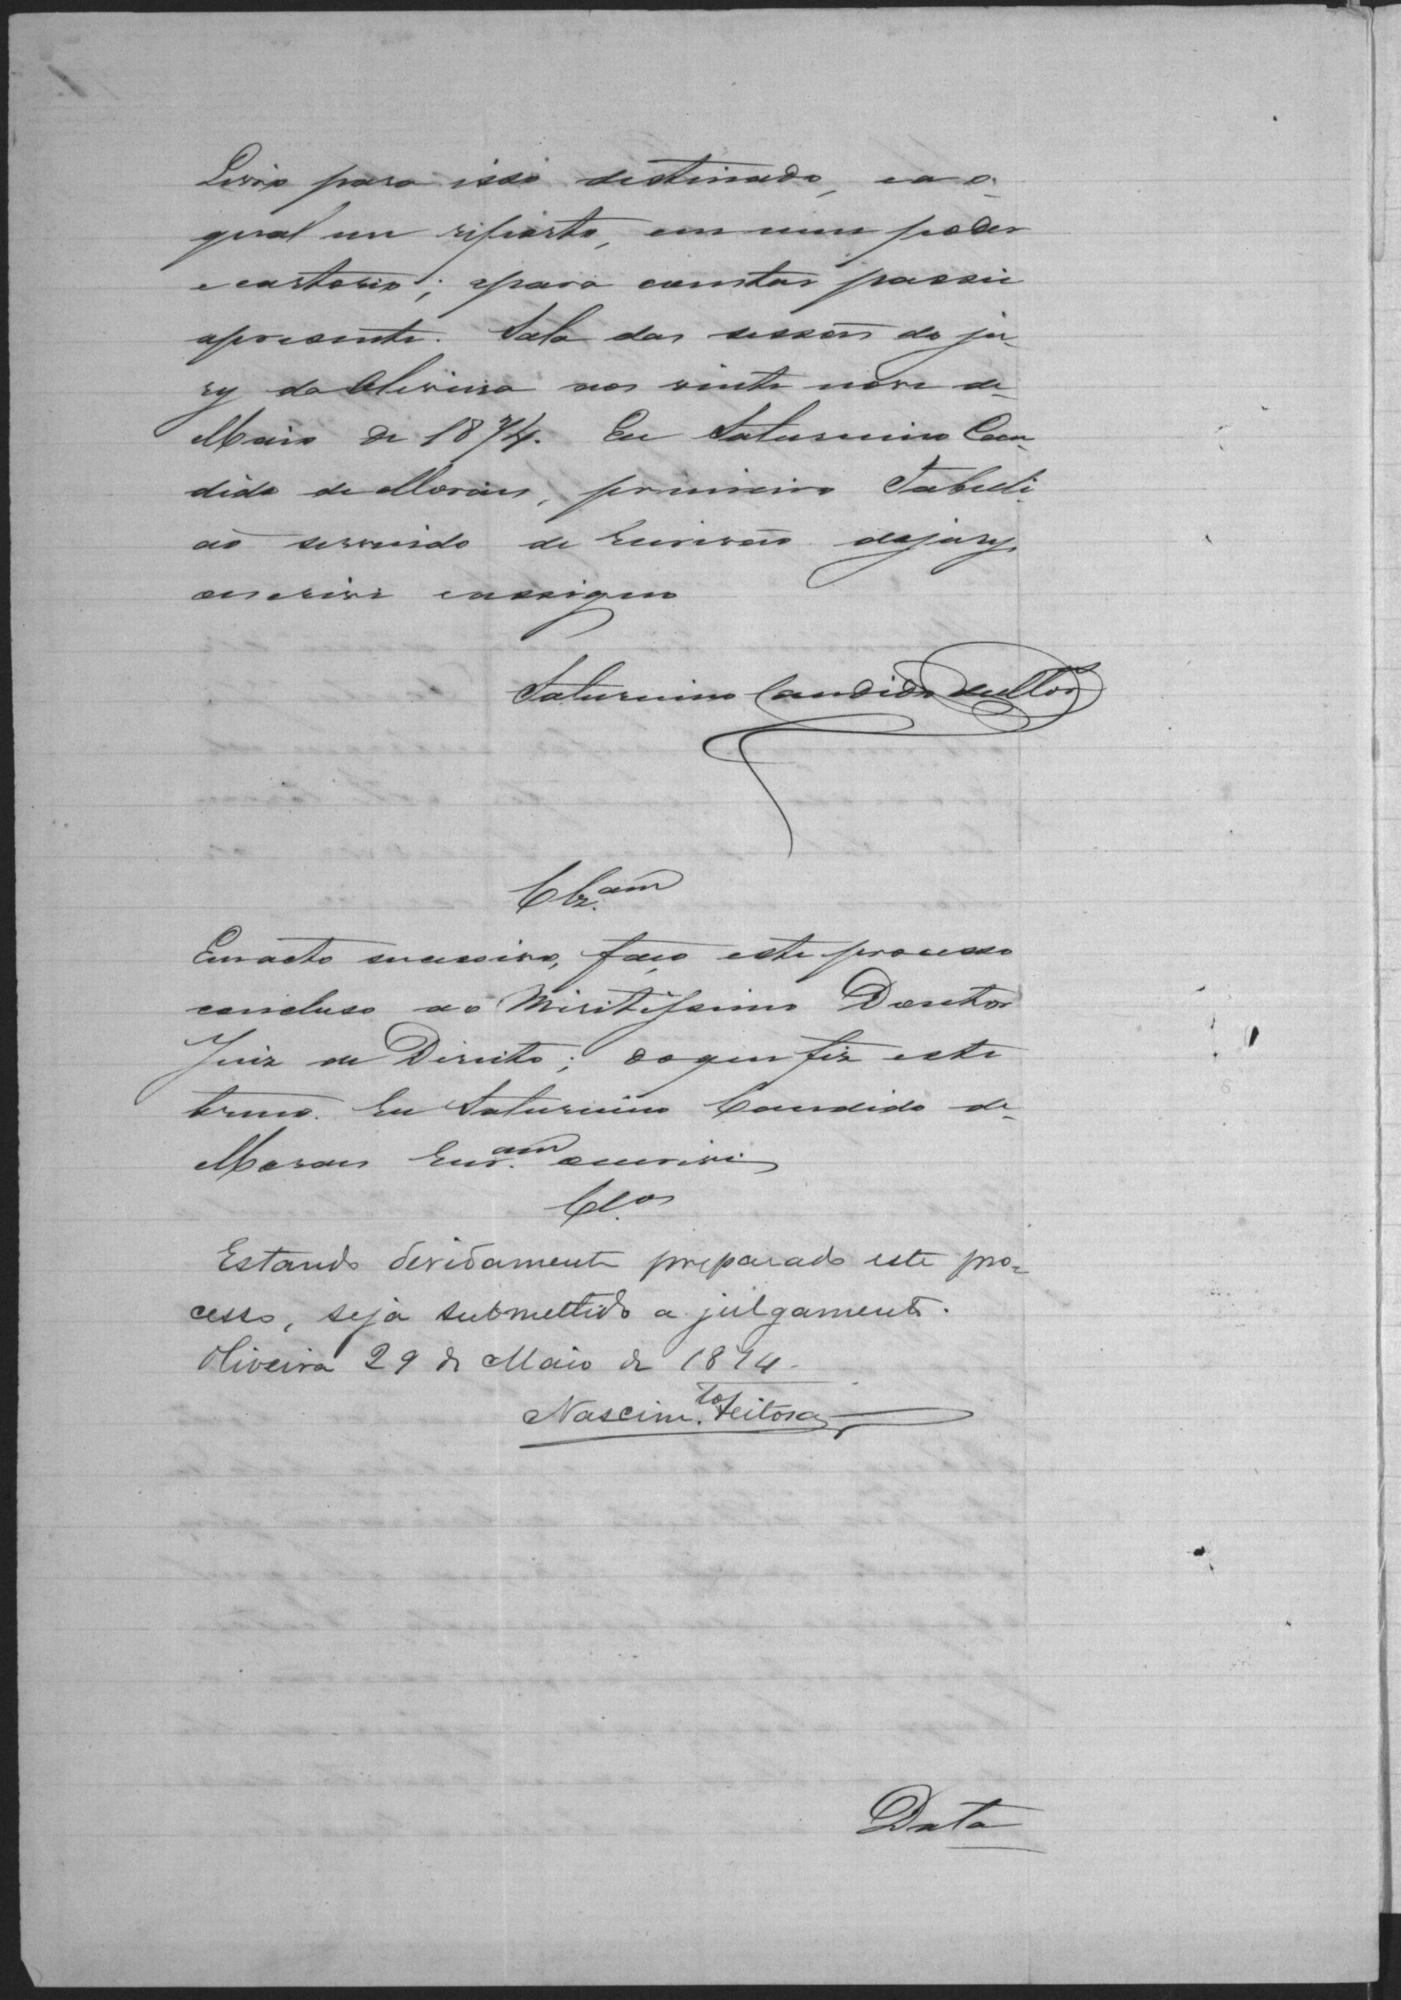 Livro para isso destinado, ea o
qual me reporto, em meu poder
e cartorio; epara constar passei
apresente. Sala das sessões do ju-
ry da Oliveira aos vinte nove de
Maio de 1874. Eu Saturnino Can-
dido de Moraes, primeiro Tabelli-
ão servindo de Escrivão dojury
oescrivi eassigno
Saturnino Candido de Mor
Clz.am
Emacto successivo, faço este processo
concluso ao Meritissimo Doutor
Juiz de Direito; doque fiz este
termo. Eu Saturnino Candido de
Moraes Escr.am oescrivi
Cl.os
Estando devidamente preparado este pro-
cesso, seja submettido a julgamento.
Oliveira 29 de Maio de 1874.
Nascim.to Feitosa
Data